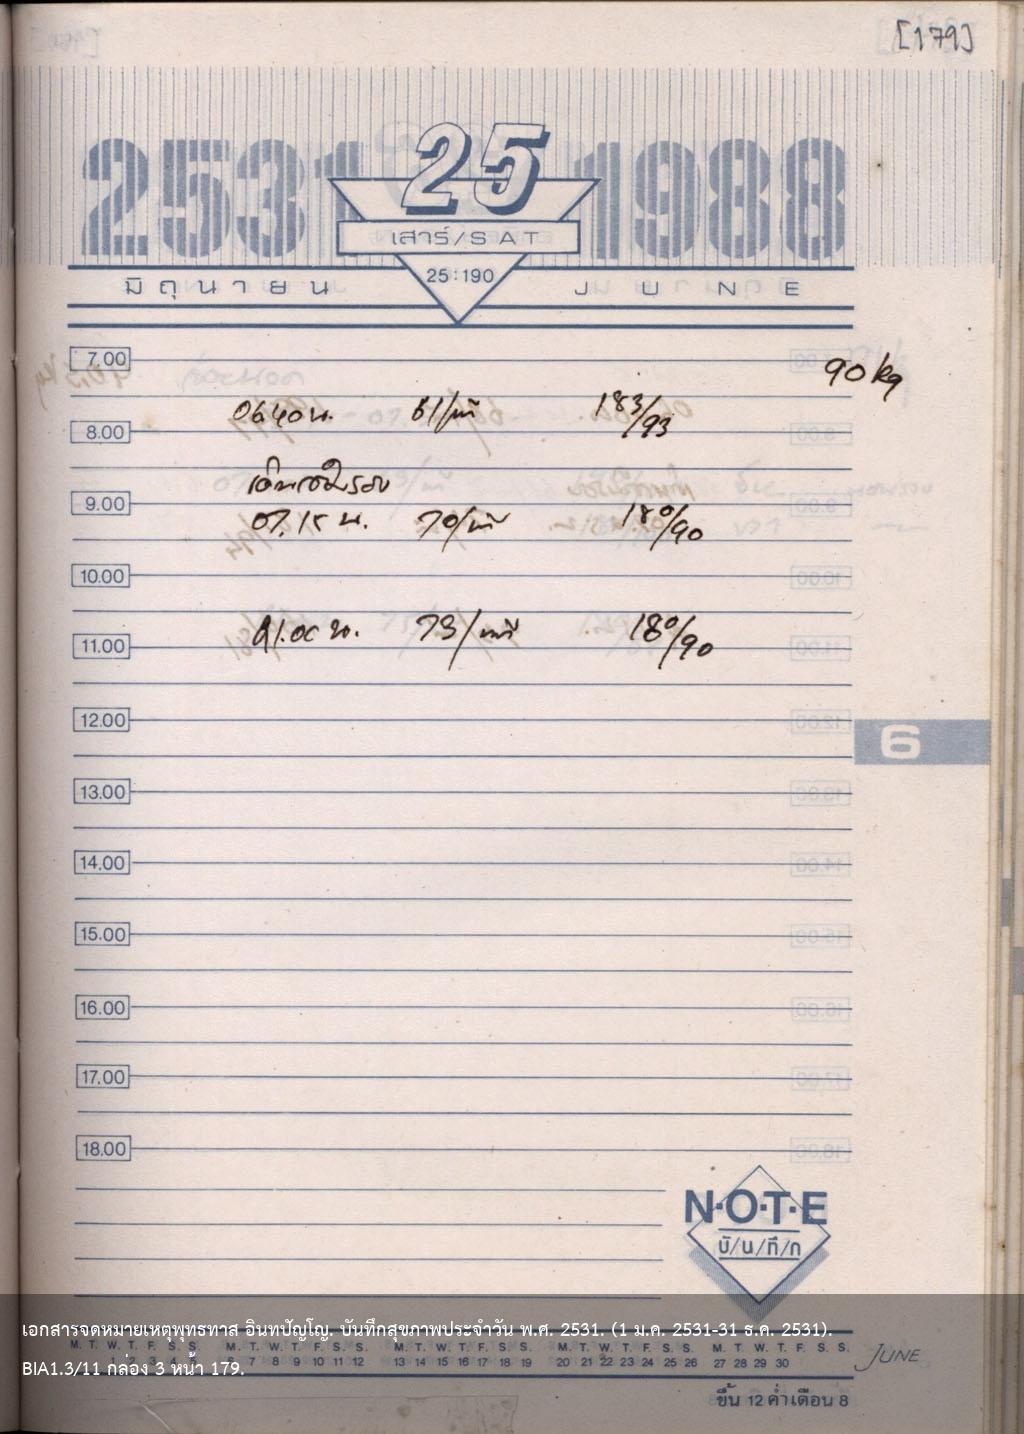 [179]
2531 25 1988
เสาร์/SAT
25:190
มิถุนายน JUNE
7.00
90 kg
06.40 น. 61/นาที 183/93
8.00
9.00
07.15 น. 70/นาที 180/90
10.00
73/นาที 180/90
11.00
12.00
6
13.00
14.00
15.00
16.00
17.00
18.00
N·O·T·E
บั/น/ทึ/ก
เอกสารจดหมายเหตุพุทธทาส อินทปัญโญ. บันทึกสุขภาพประจำวัน พ.ศ. 2531. (1 ม.ค. 2531-31 ธ.ค. 2531).
M. T. W. T. F. S. S. M. T. W. T. F. S. S. M. T. W. T. F. S. S. M. T. W. T. F. S. S. M. T. W. T. F. S. S.
1 2 3 4 5 6 7 8 9 10 11 12 13 14 15 16 17 18 19 20 21 22 23 24 25 26 27 28 29 30 JUNE
BIA1.3/11 กล่อง 3 หน้า 179.
ขึ้น 12 ค่ำ เดือน 8